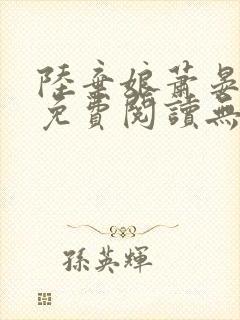 陸棄娘蕭晏
免費閱讀無
孫英輝